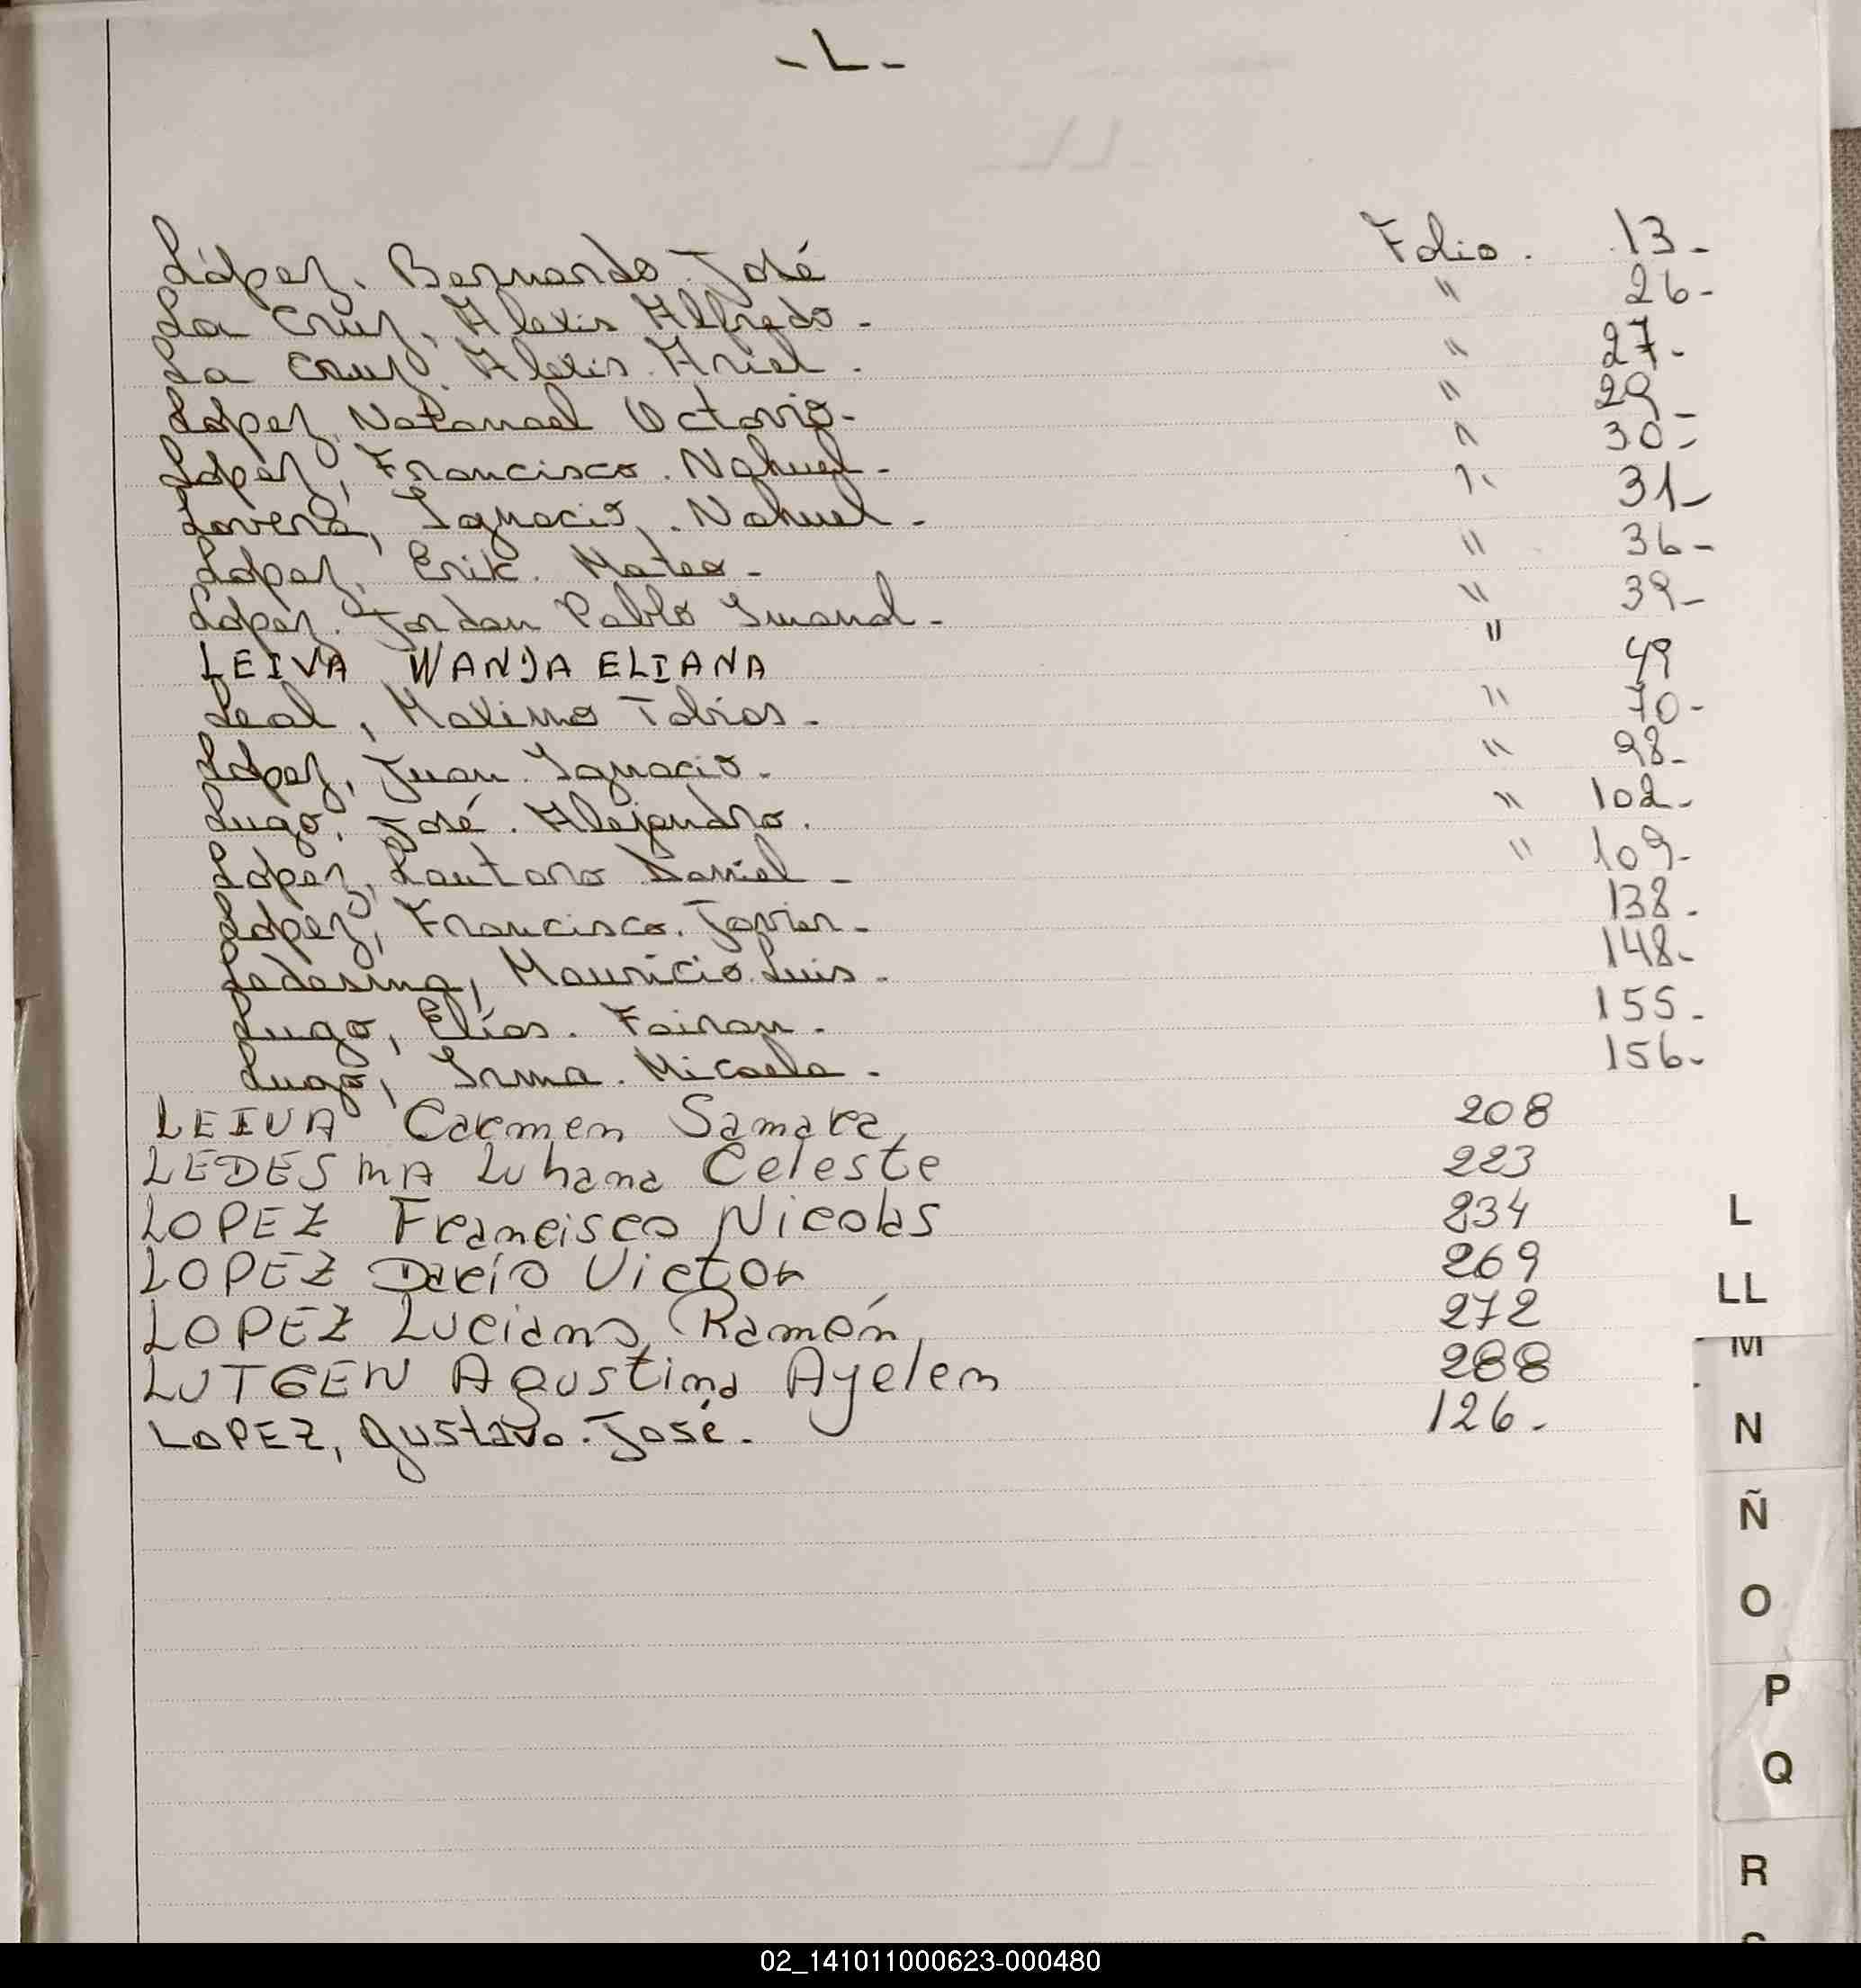 - L -
López, Bernardo José Folio . 13 -
La Cruz, Alexis Alfredo - " 26 -
La Cruz, Alexis Ariel . " 27 -
López, Natanael Octavio - " 29 -
López, Francisco . Nahuel - " 30 -
Lovera, Ignacio . Nahuel - " 31 -
López, Erik . Mateo - " 36 -
López . Jordan Pablo Imanol - " 39 -
LEIVA WANDA ELIANA " 49
Leal, Maximo Tobias - " 70 -
López, Juan Ignacio - " 98 -
Lugo, José . Alejandro . " 102 -
López, Lautaro Daniel - " 109 -
López, Francisco . Javier - 138 -
Ledesma, Mauricio Luis - 148 -
Lugo, Elías . Fairan - 155 -
Lugo, Irma . Micaela - 156 -
LEIVA Carmen Samara 208
LEDESMA Luhana Celeste 223
LOPEZ Francisco Nicolas 234
LOPEZ Darío Victor 269
LOPEZ Luciano Ramón 272
LUTGEN Agustina Ayelem 288
LOPEZ, Gustavo . José . 126 -
L
LL
M
N
Ñ
O
P
Q
R
02_141011000623-000480